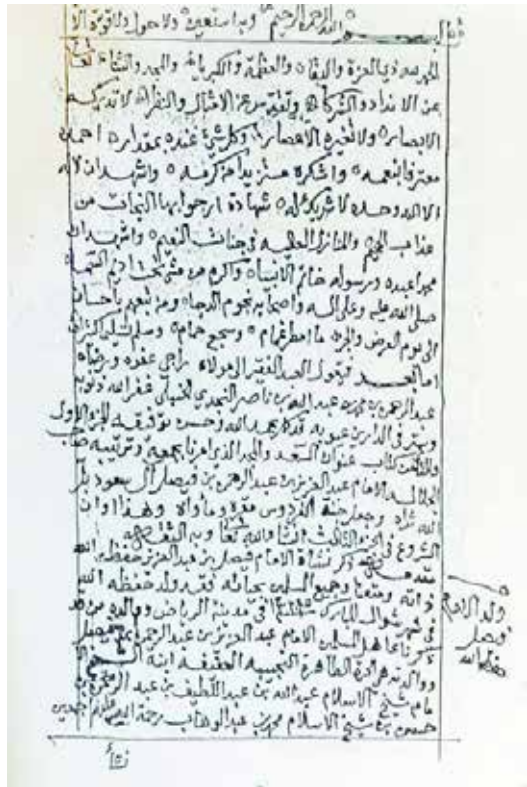 بسم الله الرحمن الرحيم وبه نستعين ولا حول ولا قوة الا
الحمد لله ذي العزة والبقاء والعظمة والكبرياء والمجد والثناء تعالى
عن الانداد والشركاء وتقدس عن الامثال والنظراء لا تدركه
الابصار ولا تغيره الاعصار وكل شيء عنده بمقدار احمده
معترفا بنعمه واشكره مستزيدا من كرمه واشهد ان لا اله
الا الله وحده لا شريك له شهادة ارجو بها النجاة من
عذاب الجحيم والمنازل العلية في جنات النعيم واشهد ان
محمدا عبده ورسوله خاتم الانبياء واكرم من مشى تحت اديم السماء
صلى الله عليه وعلى اله واصحابه نجوم الدجاء ومن تبعهم باحسان
الى يوم العرض والجزاء ما امطر غمام وسجع حمام وسلم تسليما كثيرا
اما بعد فيقول العبد الفقير الى مولاه راجي عفوه ورضاه
عبد الرحمن بن محمد بن عبد الله بن ناصر النجدي الحنبلي غفر الله ذنوبه
وستر في الدارين عيوبه قد كمل بحمد الله وحسن توفيقه الجزء الاول
والثاني من كتاب عنوان السعد والمجد الذي امرنا بجمعه وترتيبه صاحب
الجلالة الامام عبد العزيز بن عبد الرحمن بن فيصل آل سعود بل
الله ثراه وجعل جنة الفردوس مقره ومأواه وهذا اوان
الشروع في الجزء الثالث ان شاء الله تعالى وبه الثقة
مقدمة في ذكر نشأة الامام فيصل بن عبد العزيز حفظه الله
ذاته ومتعنا وجميع المسلمين بحياته فقد ولد حفظه الله
في شهر شوال المبارك في مدينة الرياض ووالده من قد
ذكرنا عاهل المسلمين الامام عبد العزيز بن عبد الرحمن بن فيصل
ووالدته هي المرأة الطاهرة النجيبة العفيفة ابنة الشيخ الا
مام شيخ الاسلام عبد الله بن عبد اللطيف بن عبد الرحمن بن
حسن بن شيخ الاسلام محمد بن عبد الوهاب رحمة الله عليهم اجمعين
ولد الامام
فيصل
حفظه الله
نشأ